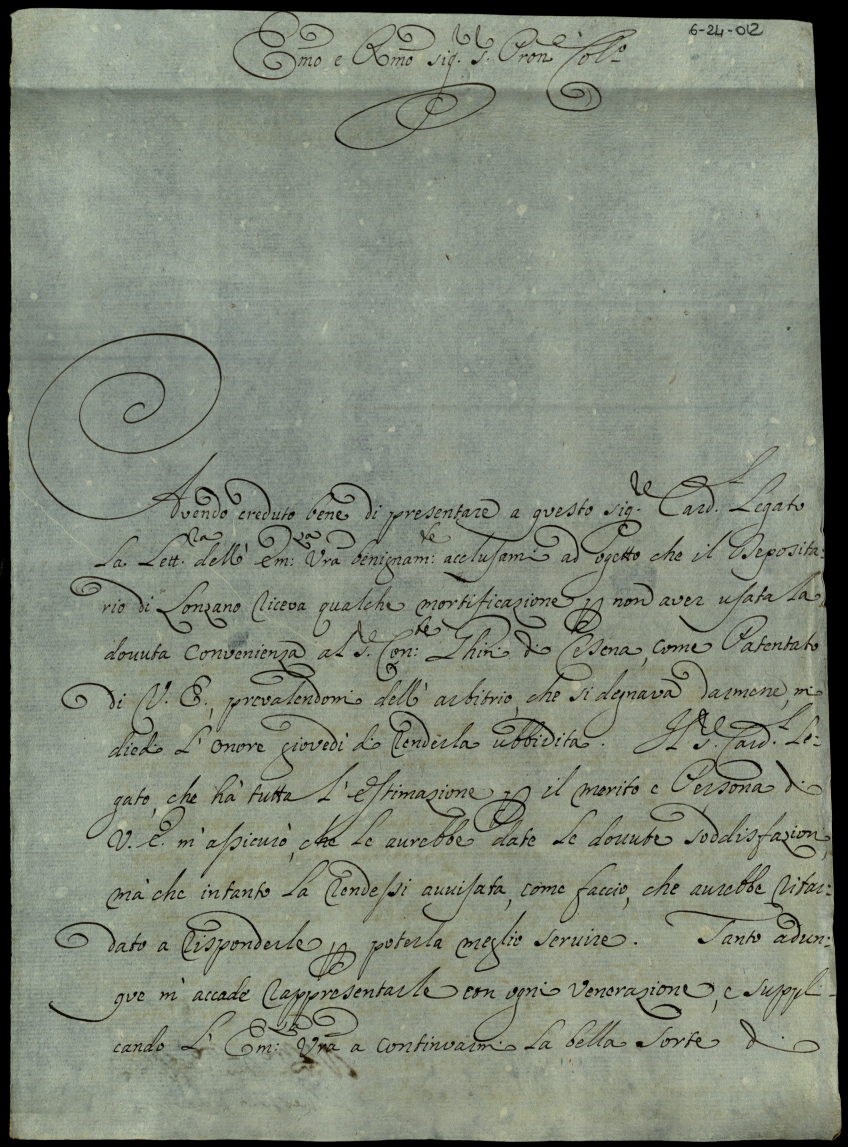 6-24-012
Emo e Rmo sig.r s. Pron Col.o
Avendo creduto bene di presentare a questo sig.re Card.l Legato
La Lett.ra dell' Em:za Vrã benignam:te acclusami ad ogetto che il Deposita:
rio di Lonzano riceva qualche mortificazione p non aver usata la
dovuta convenienza al S.r Con:te Ghini di Cesena, come Patentato
di V. E., prevalendomi dell' arbitrio, che si degnava darmene, mi
diedi L' onore giovedì di renderla ubbidita. Il S.re Card.l Le:
gato, che hà tutta L' estimazione p il merito e Persona di
V. E. m' assicurò, che Le aurebbe date Le dovute soddisfazioni,
mà che intanto La rendessi avvisata, come faccio, che aurebbe ritar:
dato a risponderle p poterla meglio servire. Tanto adun:
que m' accade rappresentarle con ogni venerazione, e suppli:
cando L' Em: Vrã a continvarmi La bella sorte di